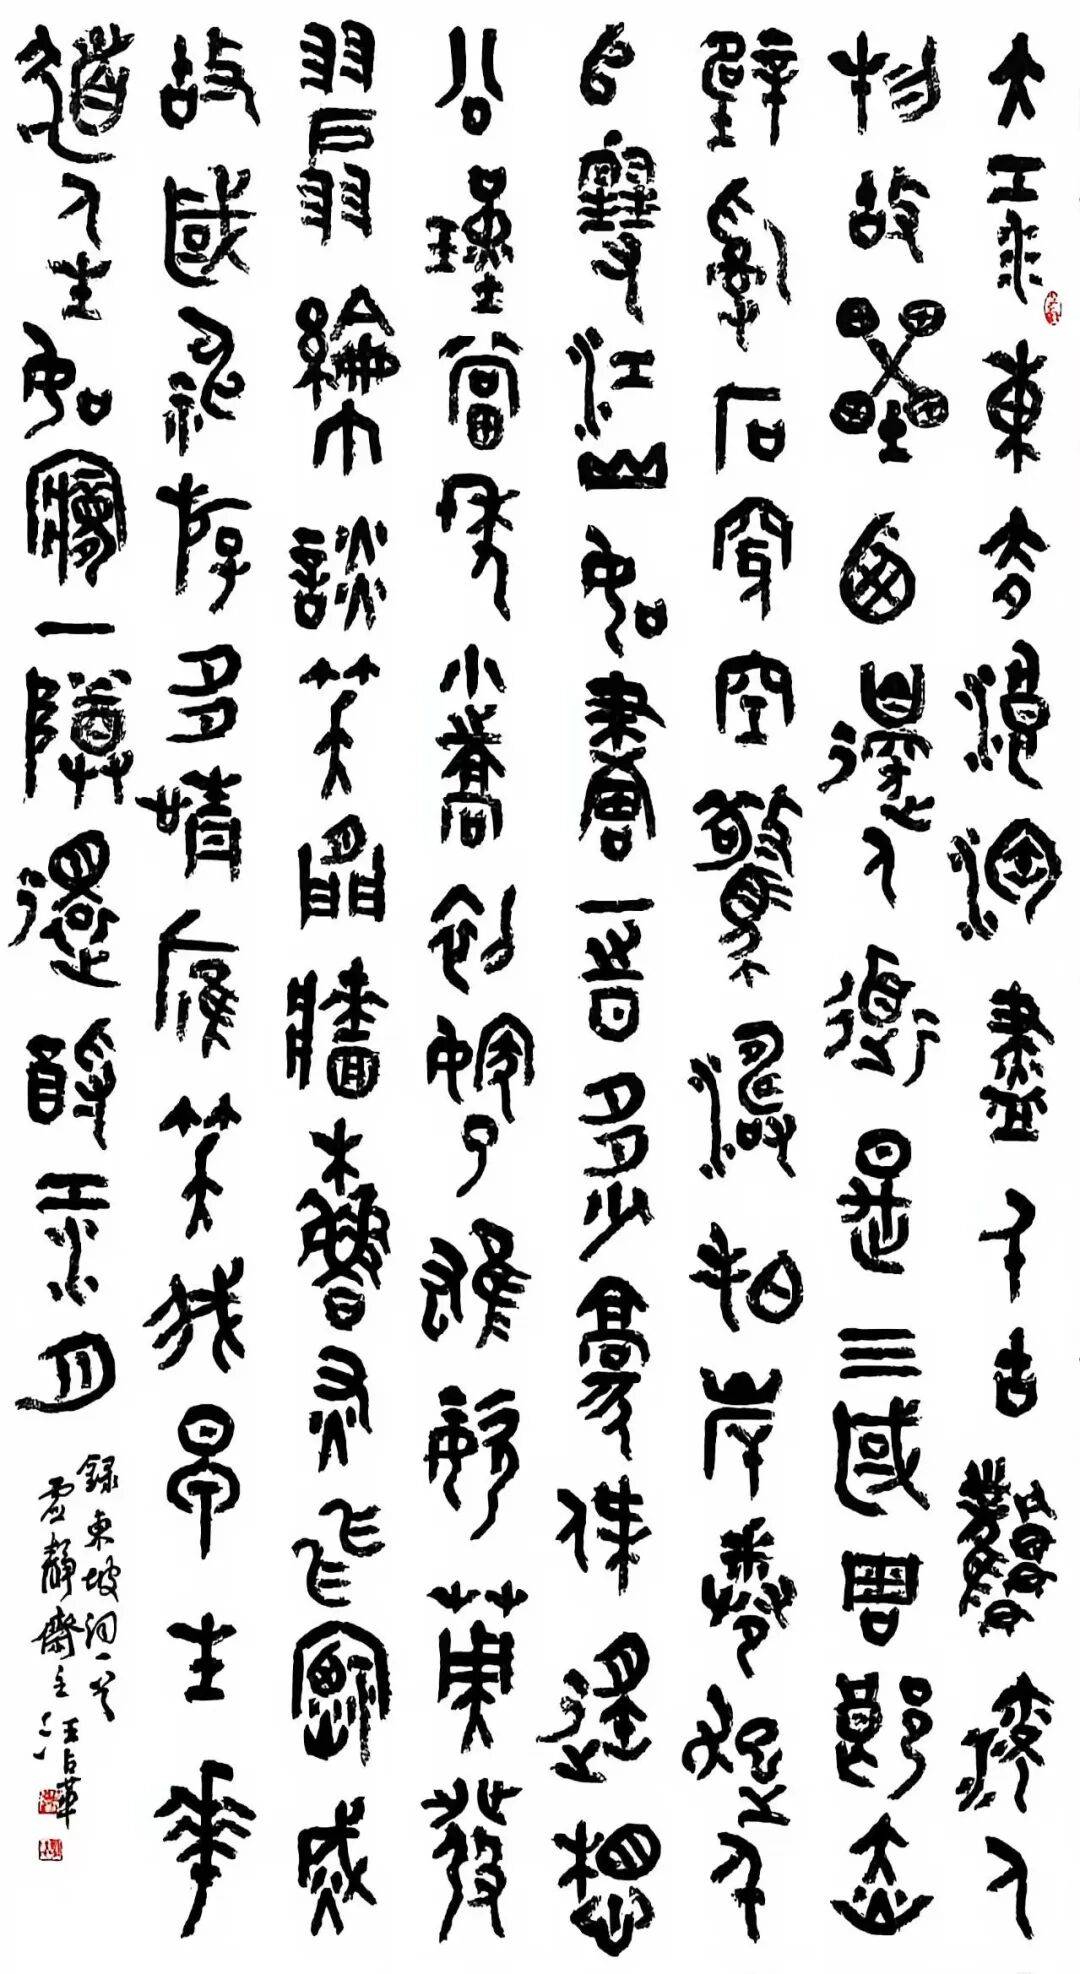 大江東去浪淘盡千古風流人
物故壘西邊人道是三國周郎赤
壁亂石穿空驚濤拍岸卷起千
堆雪江山如畫一時多少豪傑遙想
公瑾當年小喬初嫁了雄姿英發
羽扇綸巾談笑間檣櫓灰飛煙滅
故國神游多情應笑我早生華
髮人生如夢一尊還酹江月
錄東坡詞一首
虛靜齋主汪占革